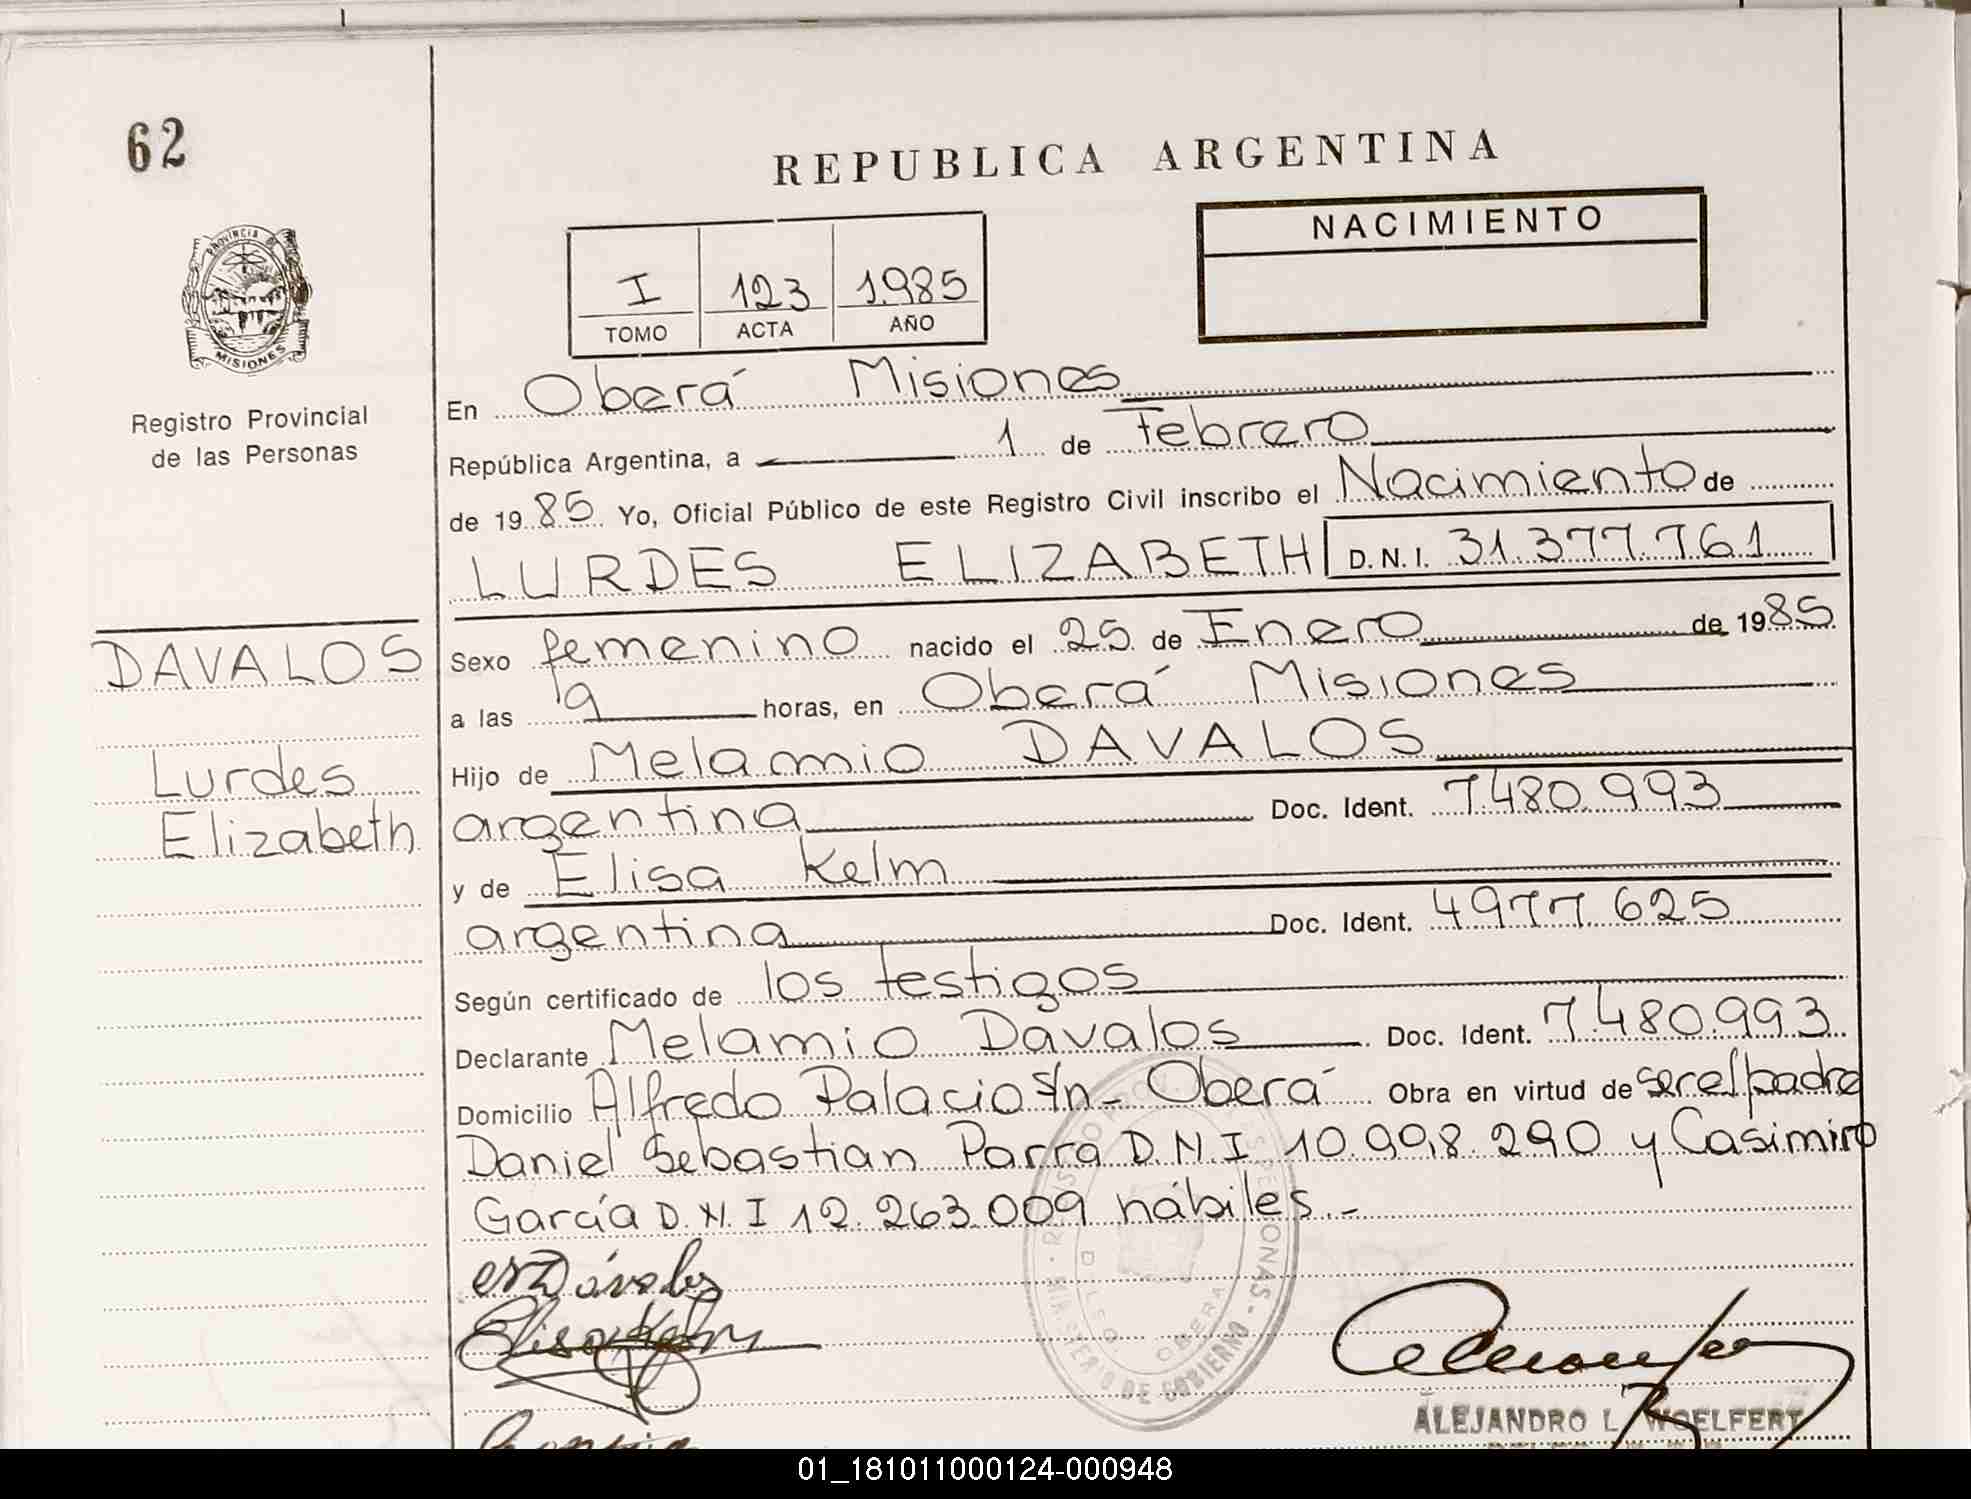 62
REPUBLICA ARGENTINA
NACIMIENTO
I 123 1985
TOMO ACTA AÑO
PROVINCIA DE
MISIONES
Registro Provincial
de las Personas
En Oberá Misiones
República Argentina, a 1 de Febrero
de 1985 Yo, Oficial Público de este Registro Civil inscribo el Nacimiento de
LURDES ELIZABETH D.N.I. 31.377.761
DAVALOS
Lurdes
Elizabeth
Sexo femenino nacido el 25 de Enero de 1985
a las 9 horas, en Oberá Misiones
Hijo de Melamio DAVALOS
argentina Doc. Ident. 7.480.993
y de Elisa Kelm
argentina Doc. Ident. 4.977.625
Según certificado de los testigos
Declarante Melamio Davalos Doc. Ident. 7.480.993
Domicilio Alfredo Palacio s/n - Oberá Obra en virtud de ser el padre
Daniel Sebastian Parra D.N.I 10.998.290 y Casimiro
García D.N.I 12.263.009 hábiles.-
Dávalos
Elisa Kelm
OBERA
DE GOBIERNO
ALEJANDRO L. WOELFERT
01_181011000124-000948